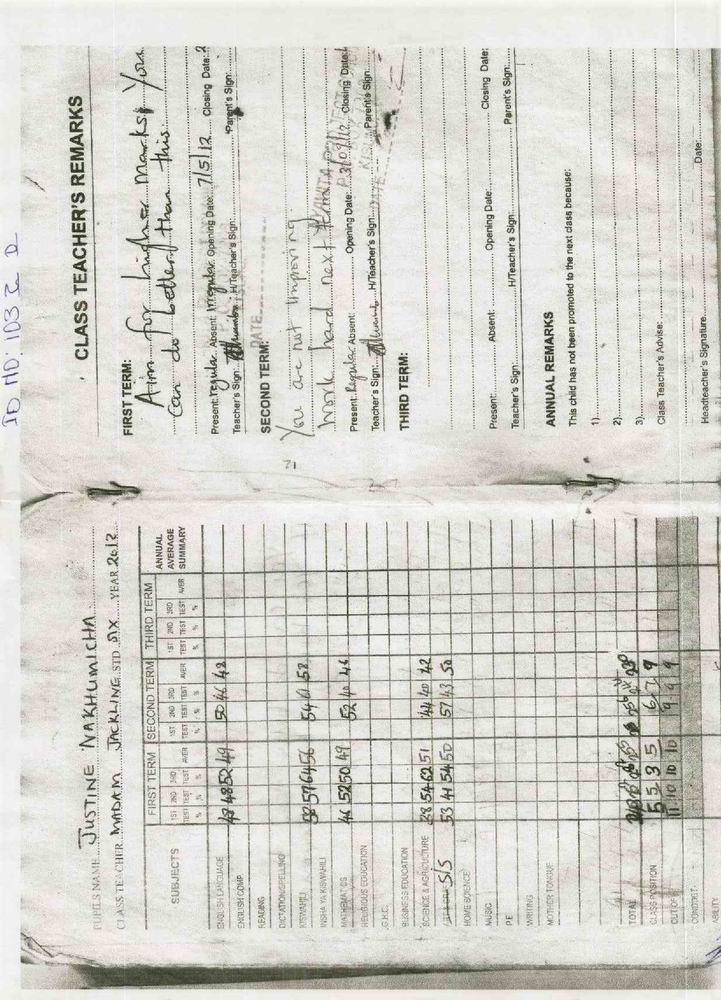 ID NO: 103
PUPILS NAME JUSTINE NAKHUMICHA
CLASS TEACHER MADAM JACKLINE STD SIX YEAR 2012
SUBJECTS FIRST TERM SECOND TERM THIRD TERM ANNUAL AVERAGE SUMMARY
1ST TEST % 2ND TEST % 3RD TEST % AVER 1ST TEST % 2ND TEST % 3RD TEST % AVER 1ST TEST % 2ND TEST % 3RD TEST % AVER
ENGLISH LANGUAGE 48 52 49 50 46 48
ENGLISH COMP
READING
DICTATION/SPELLING
KISWAHILI 57 64 56 54 61 58
INSHA YA KISWAHILI
MATHEMATICS 46 52 50 49 52 40 46
RELIGIOUS EDUCATION
G.H.C.
BUSINESS EDUCATION
SCIENCE & AGRICULTURE 28 54 62 51 44 40 42
S/S 53 41 54 50 57 43 50
HOME SCIENCE
MUSIC
PE
WRITING
MOTHER TONGUE
TOTAL
CLASS POSITION 5 5 3 5 6 7 9
OUT OF 11 10 10 10 9 9 9
CONDUCT
ABILITY
CLASS TEACHER'S REMARKS
FIRST TERM:
Aim for higher marks. You
can do better than this
Present: regular Absent: irregular Opening Date: 7/5/12 Closing Date: 2
Teacher's Sign: H/Teacher's Sign: Parent's Sign:
DATE
SECOND TERM:
You are not improving
work hard next
Present: Regular Absent: Opening Date: 3/09/12 Closing Date:
Teacher's Sign: H/Teacher's Sign: Parent's Sign:
THIRD TERM:
Present: Absent: Opening Date: Closing Date:
Teacher's Sign: H/Teacher's Sign: Parent's Sign:
ANNUAL REMARKS
This child has not been promoted to the next class because:
1)
2)
3)
Class Teacher's Advise:
Headteacher's Signature Date: